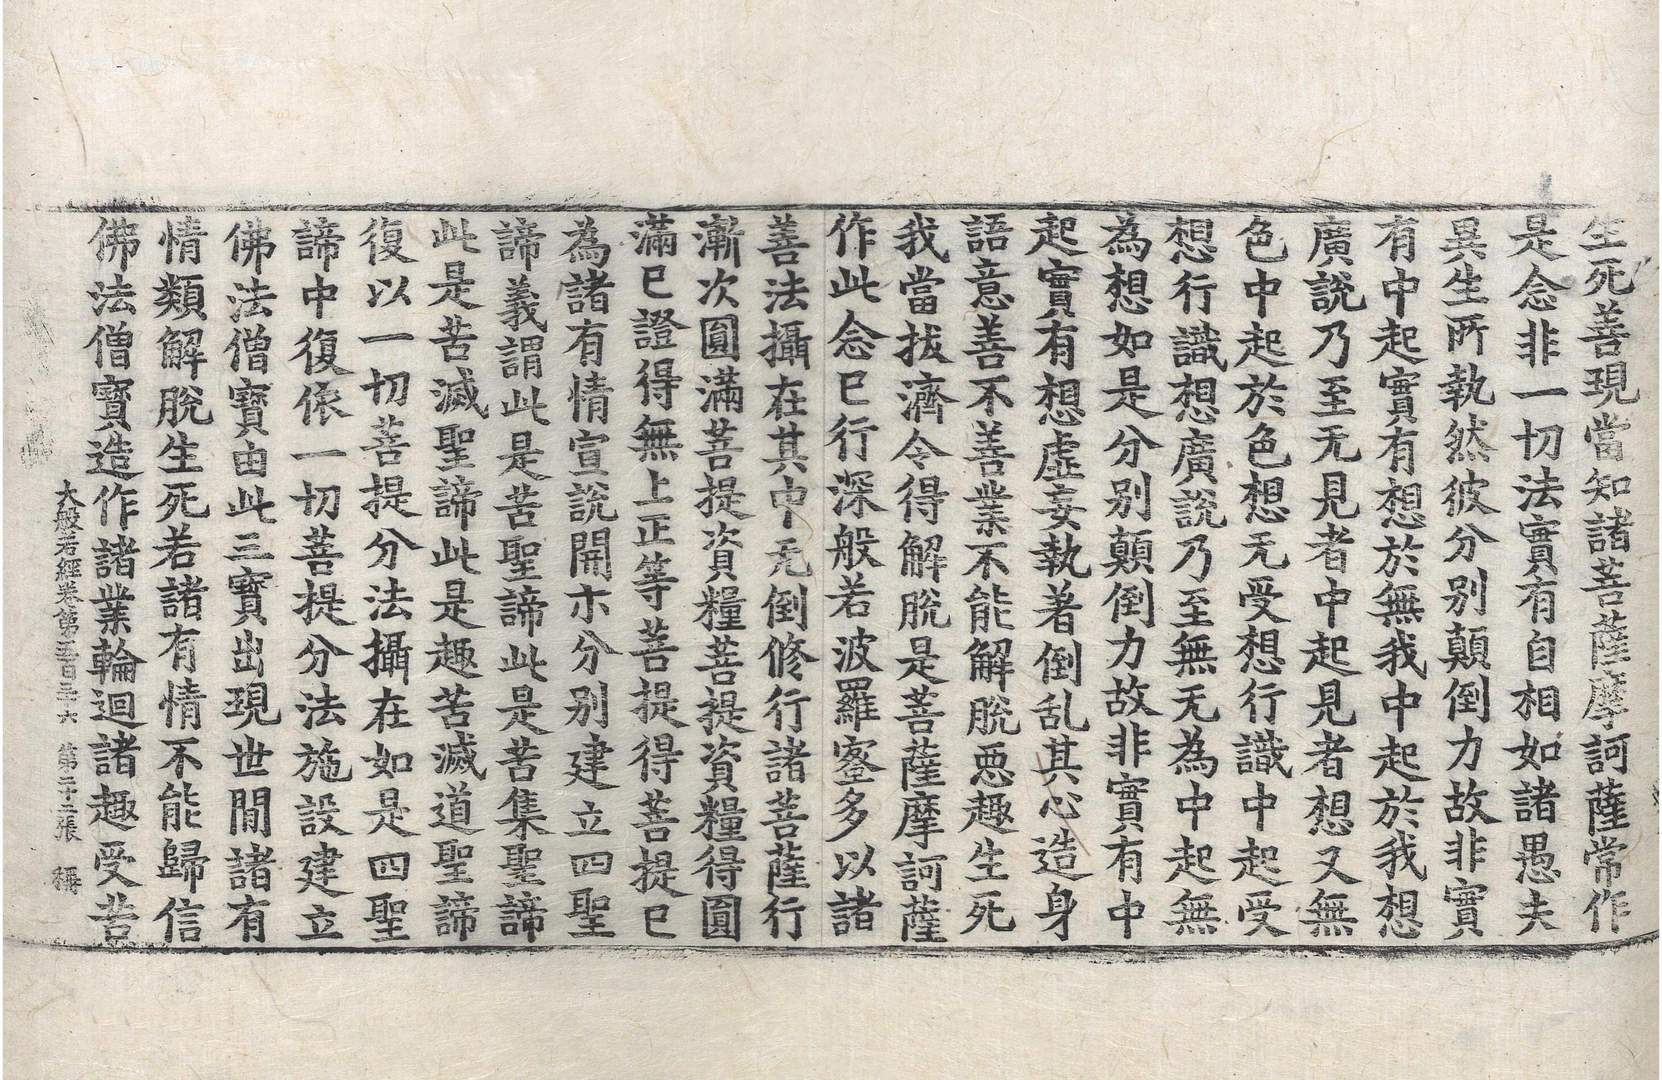 生死善現當知諸菩薩摩訶薩常作
是念非一切法實有自相如諸愚夫
異生所執然彼分別顛倒力故非實
有中起實有想於無我中起於我想
廣說乃至无見者中起見者想又無
色中起於色想无受想行識中起受
想行識想廣說乃至無无為中起無
為想如是分別顛倒力故非實有中
起實有想虛妄執著倒乱其心造身
語意善不善業不能解脫惡趣生死
我當拔濟令得解脫是菩薩摩訶薩
作此念已行深般若波羅蜜多以諸
善法攝在其中无倒修行諸菩薩行
漸次圓滿菩提資糧菩提資糧得圓
滿已證得無上正等菩提得菩提已
為諸有情宣說開尒分別建立四聖
諦義謂此是苦聖諦此是苦集聖諦
此是苦滅聖諦此是趣苦滅道聖諦
復以一切菩提分法攝在如是四聖
諦中復依一切菩提分法施設建立
佛法僧寶由此三寶出現世間諸有
情類解脫生死若諸有情不能歸信
佛法僧寶造作諸業輪迴諸趣受苦
大般若經卷第五百三十六 第二十二張 稱